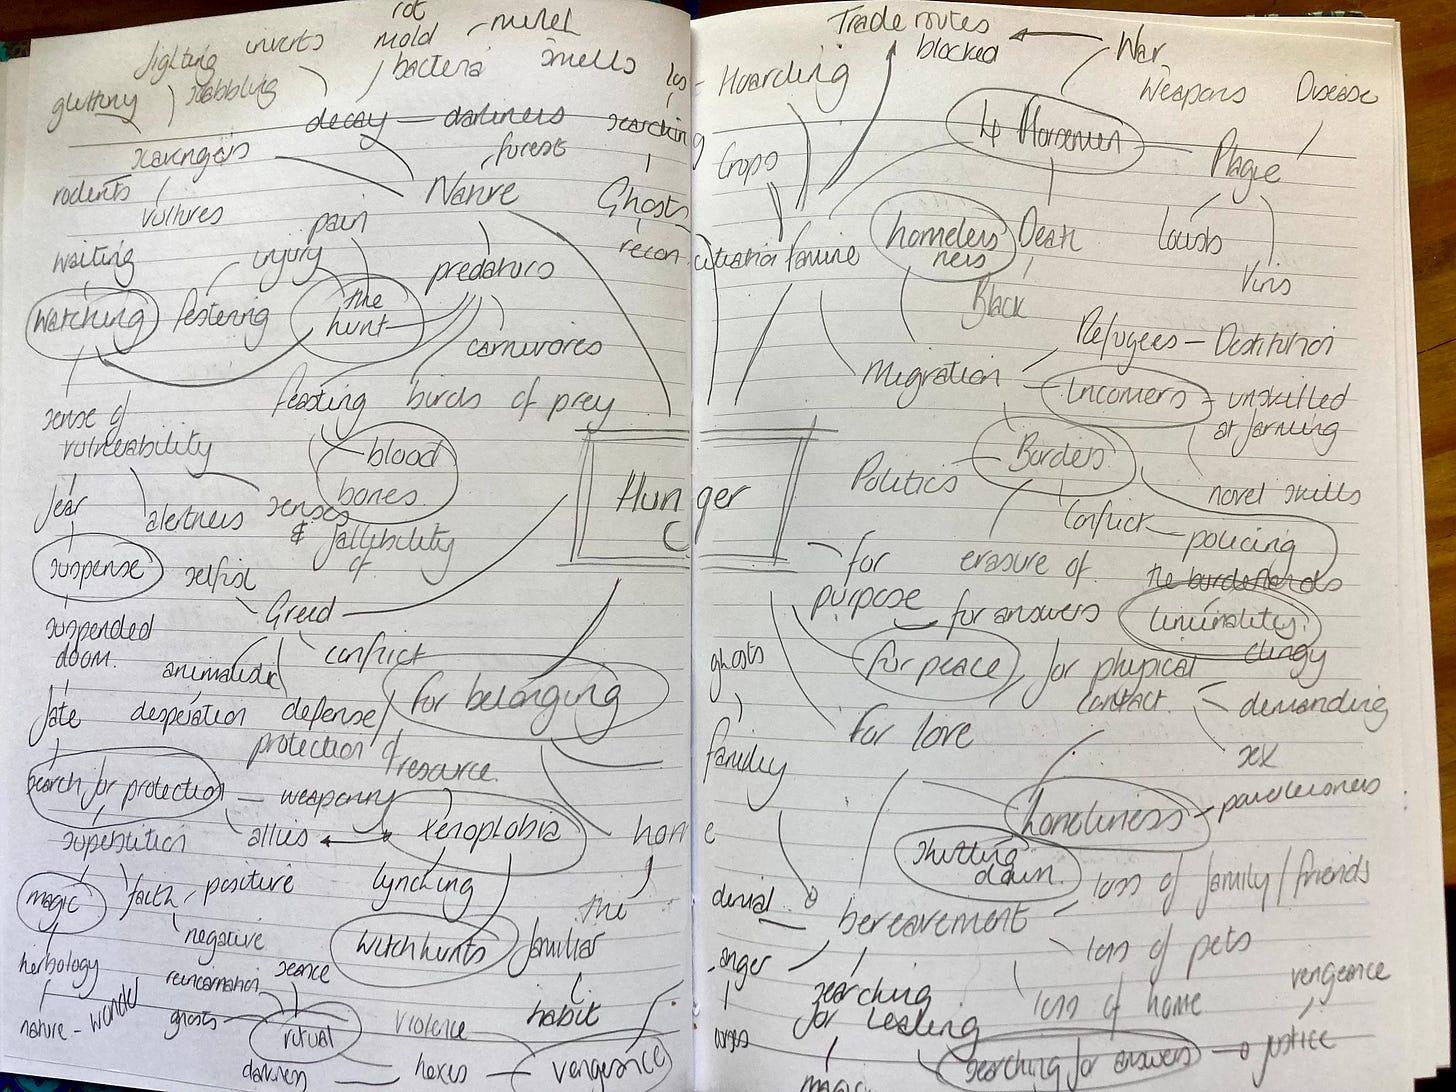 rot
mold
bacteria
smells
fighting
gluttony
scavengers
decay — darkness
searching
forest
rodents
vultures
Nature
Ghosts
pain
waiting
injury
predators
watching
festering
the
hunt
carnivores
feasting
birds of prey
sense of
vulnerability
blood
bones
fear
alertness
senses
& fallibility
of
suspense
selfish
Greed
suspended
doom.
conflict
animalistic
for belonging
fate
desperation
defense/
protection of
resource.
search for protection
weaponry
superstition
allies
xenophobia
home
magic
faith
positive
lynching
the
familiar
negative
witchhunts
herbology
reincarnation
seance
habit
nature - wonder
ghosts
ritual
violence
darkness
hexes
vengeance
Hunger
Trade routes
blocked
War
Hoarding
Weapons
Disease
4 Horsemen
Crops
Plague
famine
homeless
ness
Death
locusts
Virus
Black
Refugees — Destitution
Migration
Incomers
unskilled
at farming
Borders
Politics
novel skills
Conflict
policing
the borderlands
for
purpose
erasure of
for answers
liminality
clingy
ghosts
for peace
for physical
contact.
demanding
for love
family
sex
loneliness
parallelness
shutting
down.
loss of family/friends
denial
bereavement
loss of pets
anger
searching
for healing
loss of home
vengeance
searching for answers
justice
magic